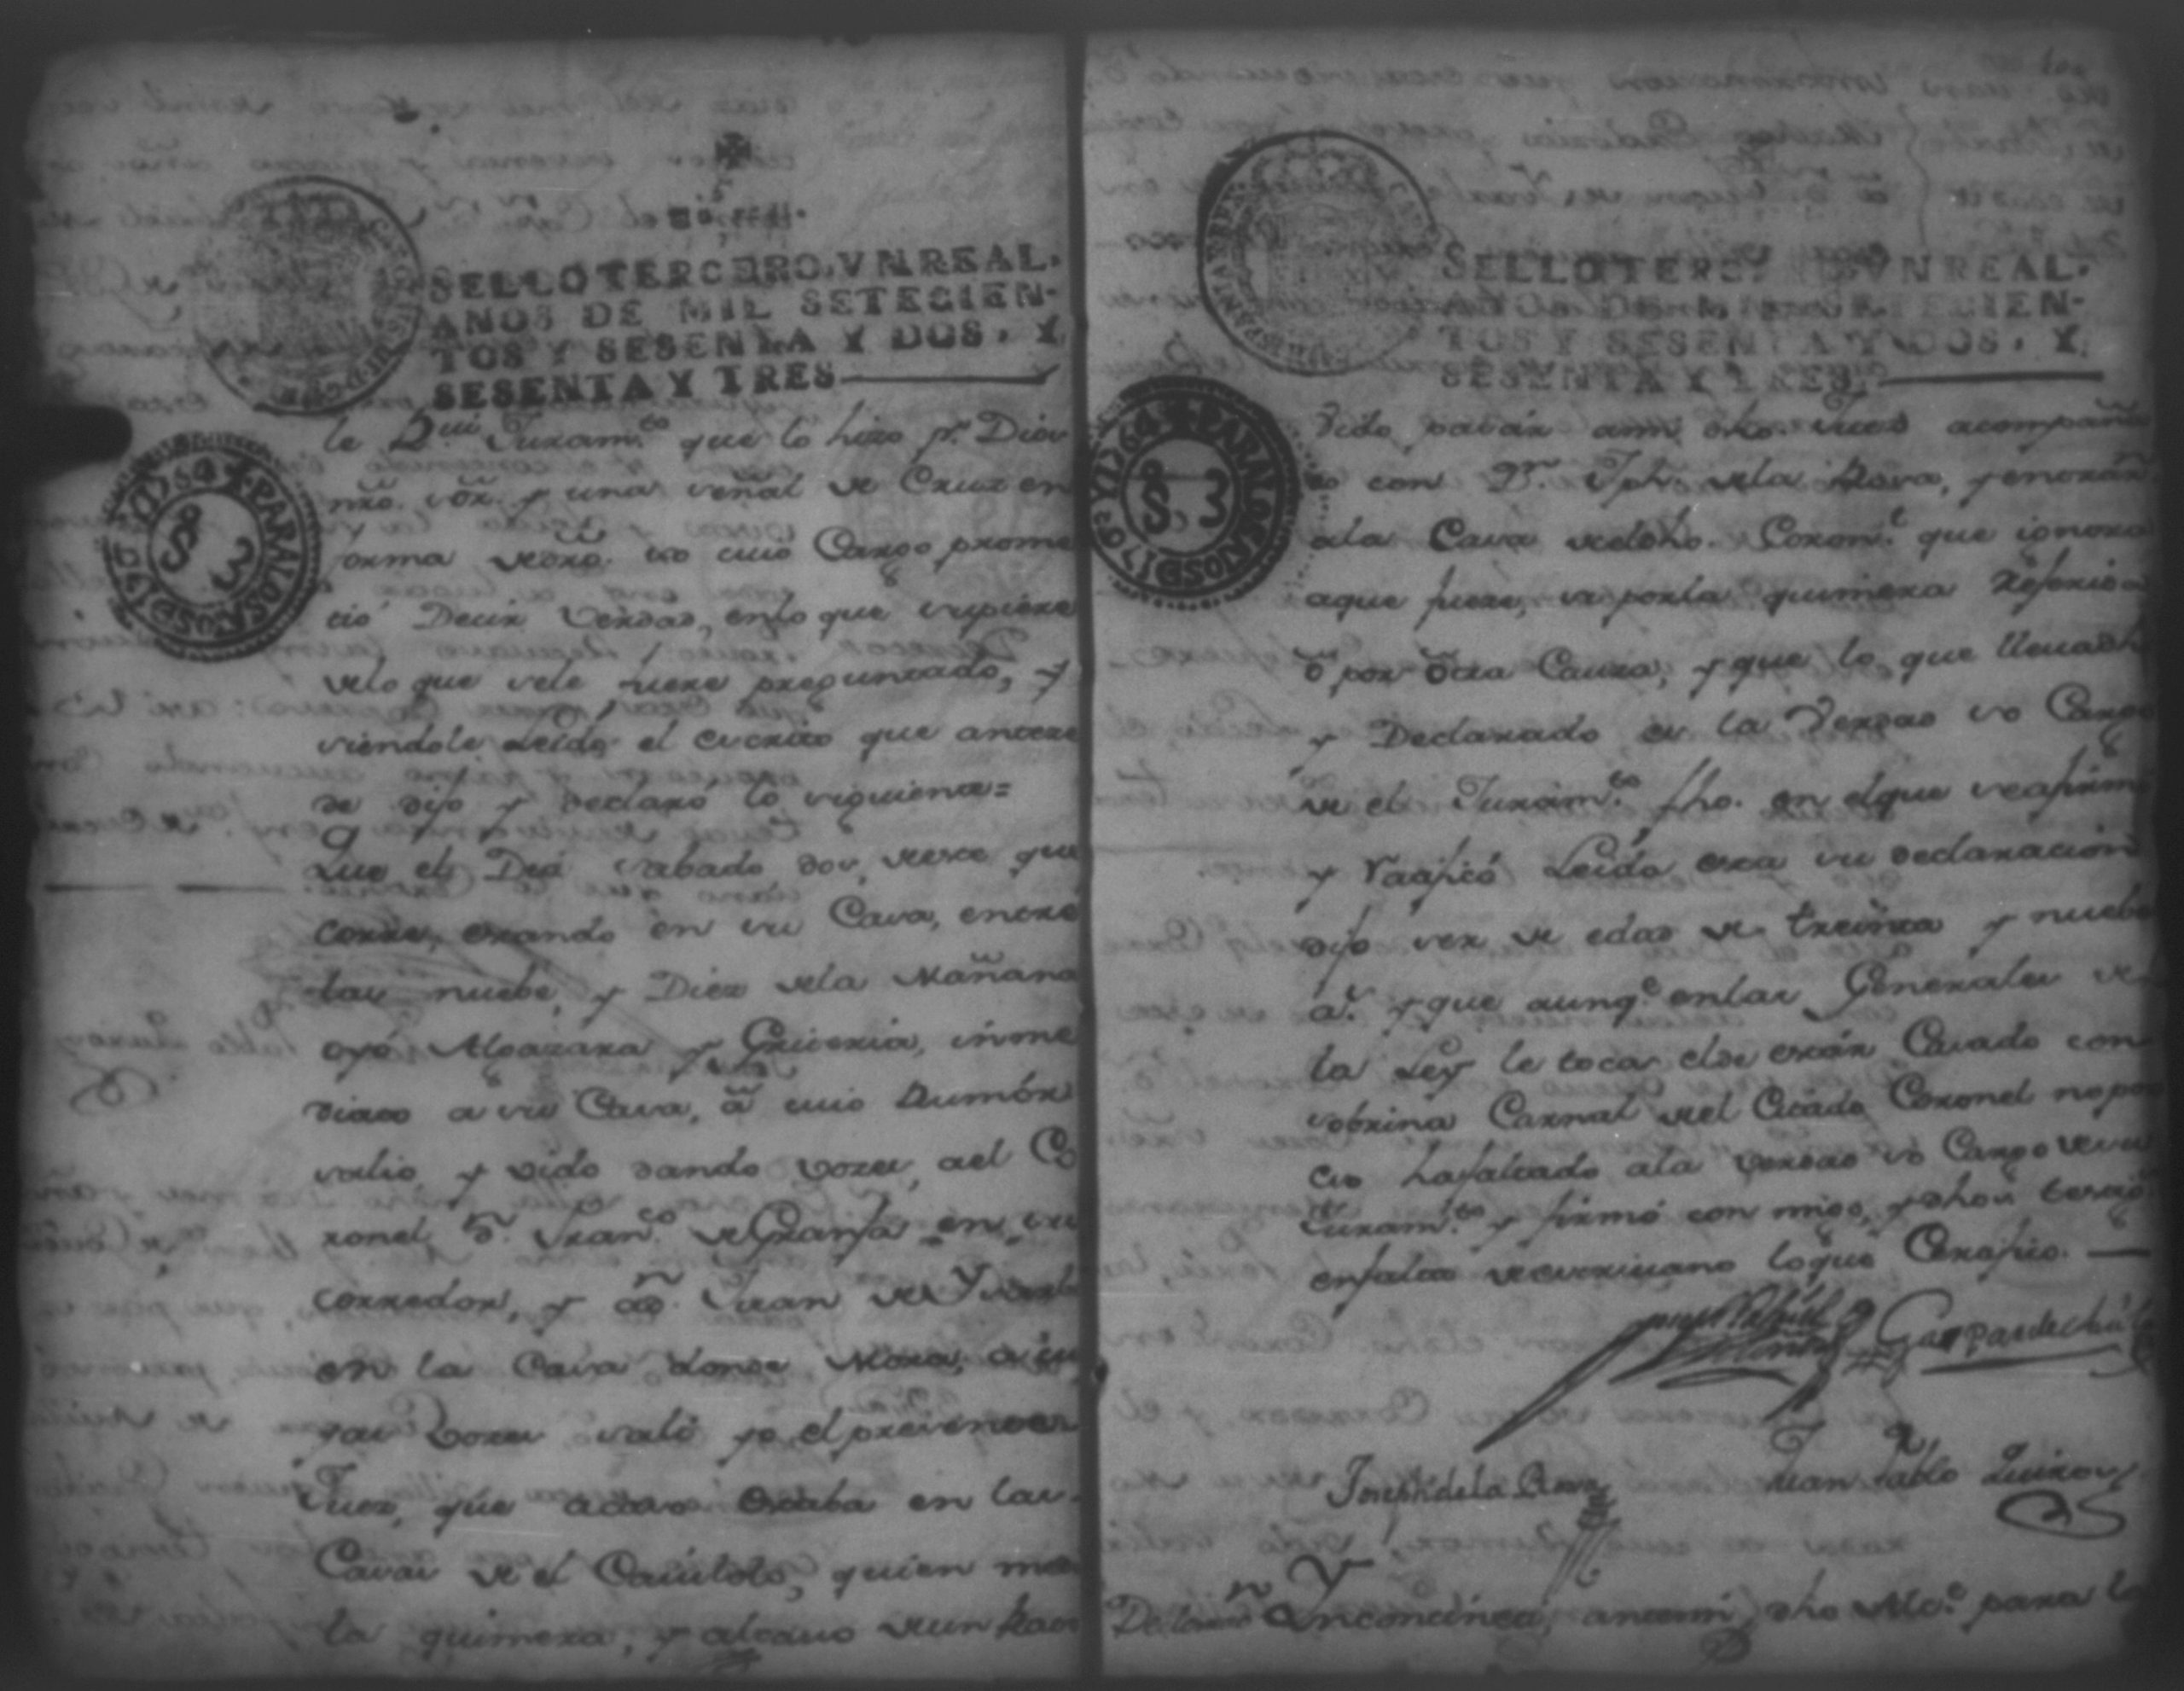 Un real.
SELLO TERCERO, VN REAL,
AÑOS DE MIL SETECIEN-
TOS Y SESENTA Y DOS, Y
SESENTA Y TRES
PARA LOS AÑOS D 1763 Y 1764
S 3
le Reciví Juram.to que lo hizo p.r Dios
nro. sōr. y una señal de Cruz en
forma de dro. so cuio Cargo prome
tió Decir Verdad, en lo que supiere
de lo que se le fuere preguntado, y
siendole Leido el escrito que antece
de dijo y declaró lo siguiente=
Que el Dia sabado dos, de este que
corre, estando en su Casa, entre
las nuebe, y Diez de la Mañana
oyó Algazara y Griteria, inme
diato a su Casa, a cuio Rumór
salio, y vido dando vozes, a el Co
ronel D.n Fran.co de Granja en su
corredor, y a D.n Juan de
en la Casa donde Mora, a cu
yas Vozes salí yo el presente
Juez, que acaso Estaba en las
Casas de el Cavildo, quien
la quimera, y a de un
SELLO TERCERO, VN REAL,
AÑOS DE MIL SETECIEN-
TOS Y SESENTA Y DOS, Y
SESENTA Y TRES
PARA LOS AÑOS D 1763 Y 1764
S 3
vido pasár a mi dho. Juez acompaña
do con D.n Jph. de la Rosa, y entrár
a la Casa de dho. Coron.l que ignora
a que fuere, si por la quimera Referida
ō por ōtra Causa, y que lo que lleva dho
y Declarado es la Verdad so Cargo
de el Juram.to fho. en el que se afirmó
y Ratificó Leida esta su declaracion
dijo ser de edad de treinta y nuebe
a.s y que aunq.e en las Generales de
la Ley le toca el de estár Casado con
sobrina Carnal de el Citado Coronel no por
eso ha faltado a la verdad so Cargo de su
Juram.to y firmó con migo, y dhos testig.s
en falta de escrivano lo que Certifico.
Gaspar de
Joseph de la Rosa
Juan Pablo Quiros
De Yncontinēti, ante mi, dho Alc.e para